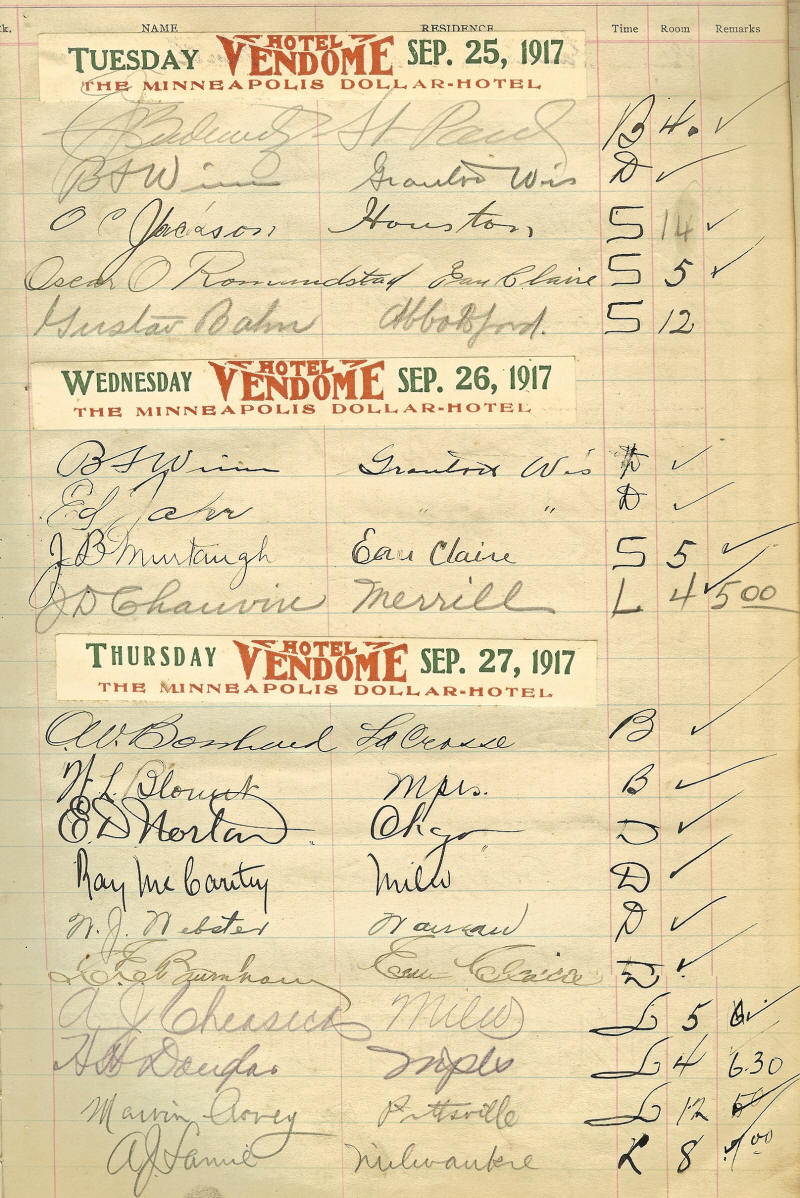 k. NAME RESIDENCE Time Room Remarks
TUESDAY HOTEL VENDOME SEP. 25, 1917
THE MINNEAPOLIS DOLLAR-HOTEL
St Paul B 4. ✓
B F Winn Wis D ✓
O C Jackson Houston S 14 ✓
Oscar O Romundstad Eau Claire S 5 ✓
Gustav Bahn Abbotsford. S 12
WEDNESDAY HOTEL VENDOME SEP. 26, 1917
THE MINNEAPOLIS DOLLAR-HOTEL
B F Winn Wis D ✓
Ed Jahr " " D ✓
J B Murtaugh Eau Claire S 5 ✓
J D Chauvin Merrill L 4 ✓ 5 00
THURSDAY HOTEL VENDOME SEP. 27, 1917
THE MINNEAPOLIS DOLLAR-HOTEL
A.W. LaCrosse B ✓
H L Blount Mpls. B ✓
E. D. Norton Chgo D ✓
Ray McCarthy Milw D ✓
W. J. Webster Wausau D ✓
Burnham Eau Claire D ✓
A J Milw L 5 ✓
H H Douglas Mpls L 4 6.30
Marvin Pittsville L 12
A.J. Lamie Milwaukee L 8 7 00